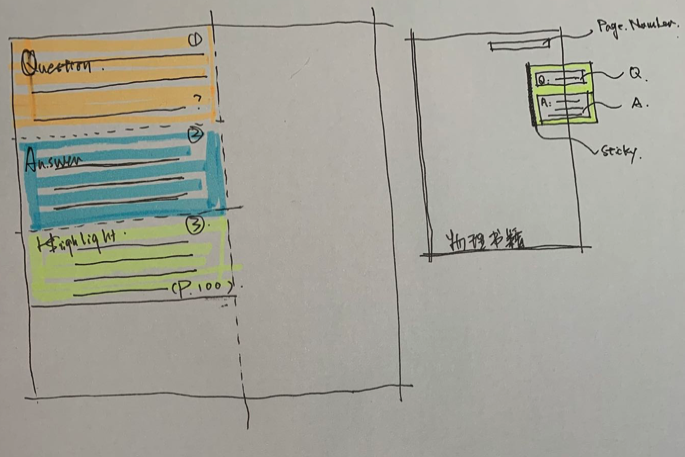 ①
Question.
?
②
Answer
③
Highlight.
(P.100).
Page.Number.
Q: 
Q.
A:
A.
Sticky.
物理书籍